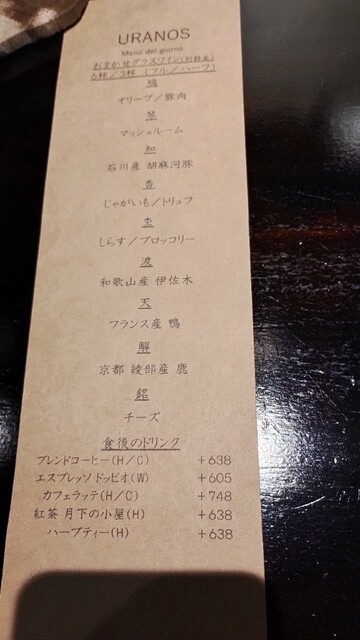 URANOS
Menu del giorno
おまかせグラスワイン(別料金)
6杯/3杯 (フル/ハーフ)
オリーブ/豚肉
琴
マッシュルーム
知
石川産 胡麻河豚
香
じゃがいも/トリュフ
杢
しらす/ブロッコリー
渡
和歌山産 伊佐木
天
フランス産 鴨
解
京都 綾部産 鹿
銘
チーズ
食後のドリンク
ブレンドコーヒー(H/C) +638
エスプレッソ ドッピオ(W) +605
カフェラッテ(H/C) +748
紅茶 月下の小屋(H) +638
ハーブティー(H) +638